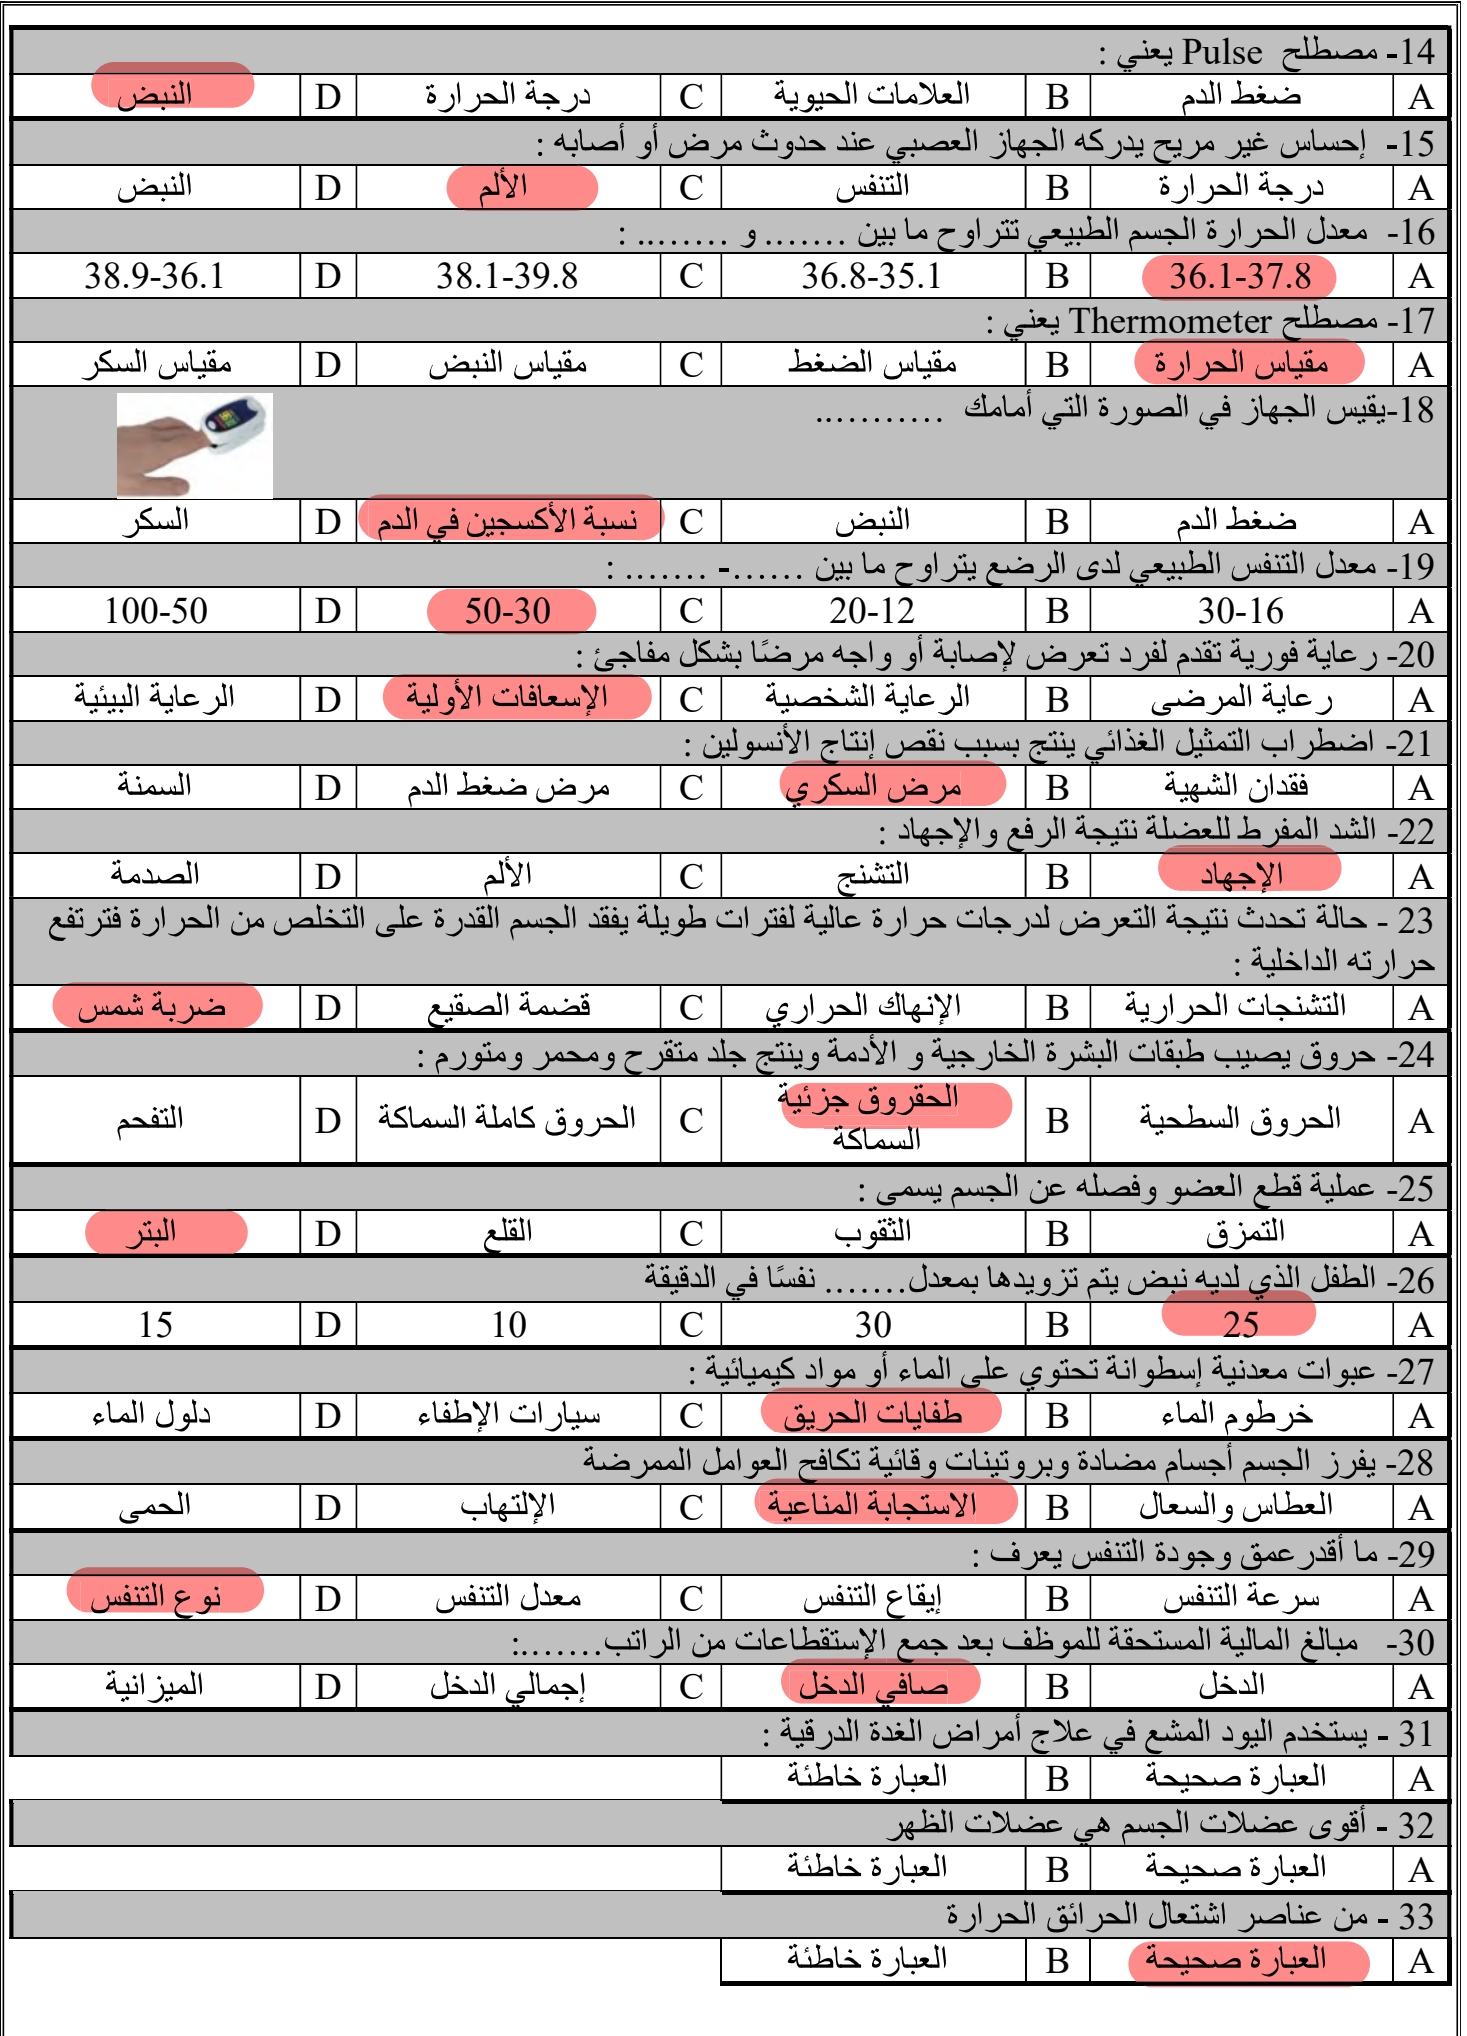 14- مصطلح Pulse يعني :
A ضغط الدم B العلامات الحيوية C درجة الحرارة D النبض
15- إحساس غير مريح يدركه الجهاز العصبي عند حدوث مرض أو أصابه :
A درجة الحرارة B التنفس C الألم D النبض
16- معدل الحرارة الجسم الطبيعي تتراوح ما بين ....... و ........ :
A 36.1-37.8 B 36.8-35.1 C 38.1-39.8 D 38.9-36.1
17- مصطلح Thermometer يعني :
A مقياس الحرارة B مقياس الضغط C مقياس النبض D مقياس السكر
18-يقيس الجهاز في الصورة التي أمامك ...........
A ضغط الدم B النبض C نسبة الأكسجين في الدم D السكر
19- معدل التنفس الطبيعي لدى الرضع يتراوح ما بين ......- ....... :
A 30-16 B 20-12 C 50-30 D 100-50
20- رعاية فورية تقدم لفرد تعرض لإصابة أو واجه مرضًا بشكل مفاجئ :
A رعاية المرضى B الرعاية الشخصية C الإسعافات الأولية D الرعاية البيئية
21- اضطراب التمثيل الغذائي ينتج بسبب نقص إنتاج الأنسولين :
A فقدان الشهية B مرض السكري C مرض ضغط الدم D السمنة
22- الشد المفرط للعضلة نتيجة الرفع والإجهاد :
A الإجهاد B التشنج C الألم D الصدمة
23 - حالة تحدث نتيجة التعرض لدرجات حرارة عالية لفترات طويلة يفقد الجسم القدرة على التخلص من الحرارة فترتفع
حرارته الداخلية :
A التشنجات الحرارية B الإنهاك الحراري C قضمة الصقيع D ضربة شمس
24- حروق يصيب طبقات البشرة الخارجية و الأدمة وينتج جلد متقرح ومحمر ومتورم :
A الحروق السطحية B الحقروق جزئية
السماكة C الحروق كاملة السماكة D التفحم
25- عملية قطع العضو وفصله عن الجسم يسمى :
A التمزق B الثقوب C القلع D البتر
26- الطفل الذي لديه نبض يتم تزويدها بمعدل....... نفسًا في الدقيقة
A 25 B 30 C 10 D 15
27- عبوات معدنية إسطوانة تحتوي على الماء أو مواد كيميائية :
A خرطوم الماء B طفايات الحريق C سيارات الإطفاء D دلول الماء
28- يفرز الجسم أجسام مضادة وبروتينات وقائية تكافح العوامل الممرضة
A العطاس والسعال B الاستجابة المناعية C الإلتهاب D الحمى
29- ما أقدر عمق وجودة التنفس يعرف :
A سرعة التنفس B إيقاع التنفس C معدل التنفس D نوع التنفس
30- مبالغ المالية المستحقة للموظف بعد جمع الإستقطاعات من الراتب........:
A الدخل B صافي الدخل C إجمالي الدخل D الميزانية
31 - يستخدم اليود المشع في علاج أمراض الغدة الدرقية :
A العبارة صحيحة B العبارة خاطئة
32 - أقوى عضلات الجسم هي عضلات الظهر
A العبارة صحيحة B العبارة خاطئة
33 - من عناصر اشتعال الحرائق الحرارة
A العبارة صحيحة B العبارة خاطئة